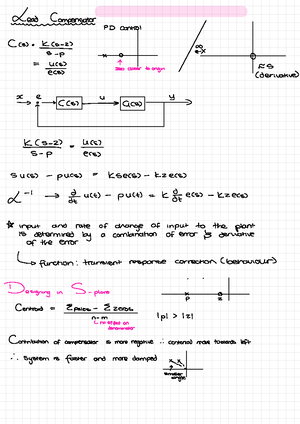 Lead Compensator
PD Control
C(s) = K(s-z) / s-p
= u(s) / e(s)
zero closer to origin
∞
≈ s
(derivative)
x e C(s) u G(s) y
K(s-z) / s-p = u(s) / e(s)
su(s) - pu(s) = kse(s) - kze(s)
L⁻¹ → d/dt u(t) - pu(t) = k d/dt e(s) - kze(s)
* input and rate of change of input to the plant
is determined by a combination of error & derivative
of the error
↳ function: transient response correction (behaviour)
Designing in S-plane
Centroid = Σpoles - Σzeros / n-m
p z
|p| > |z|
Contribution of compensator is more negative ∴ centroid more towards left
∴ System is faster and more damped
smaller
angle